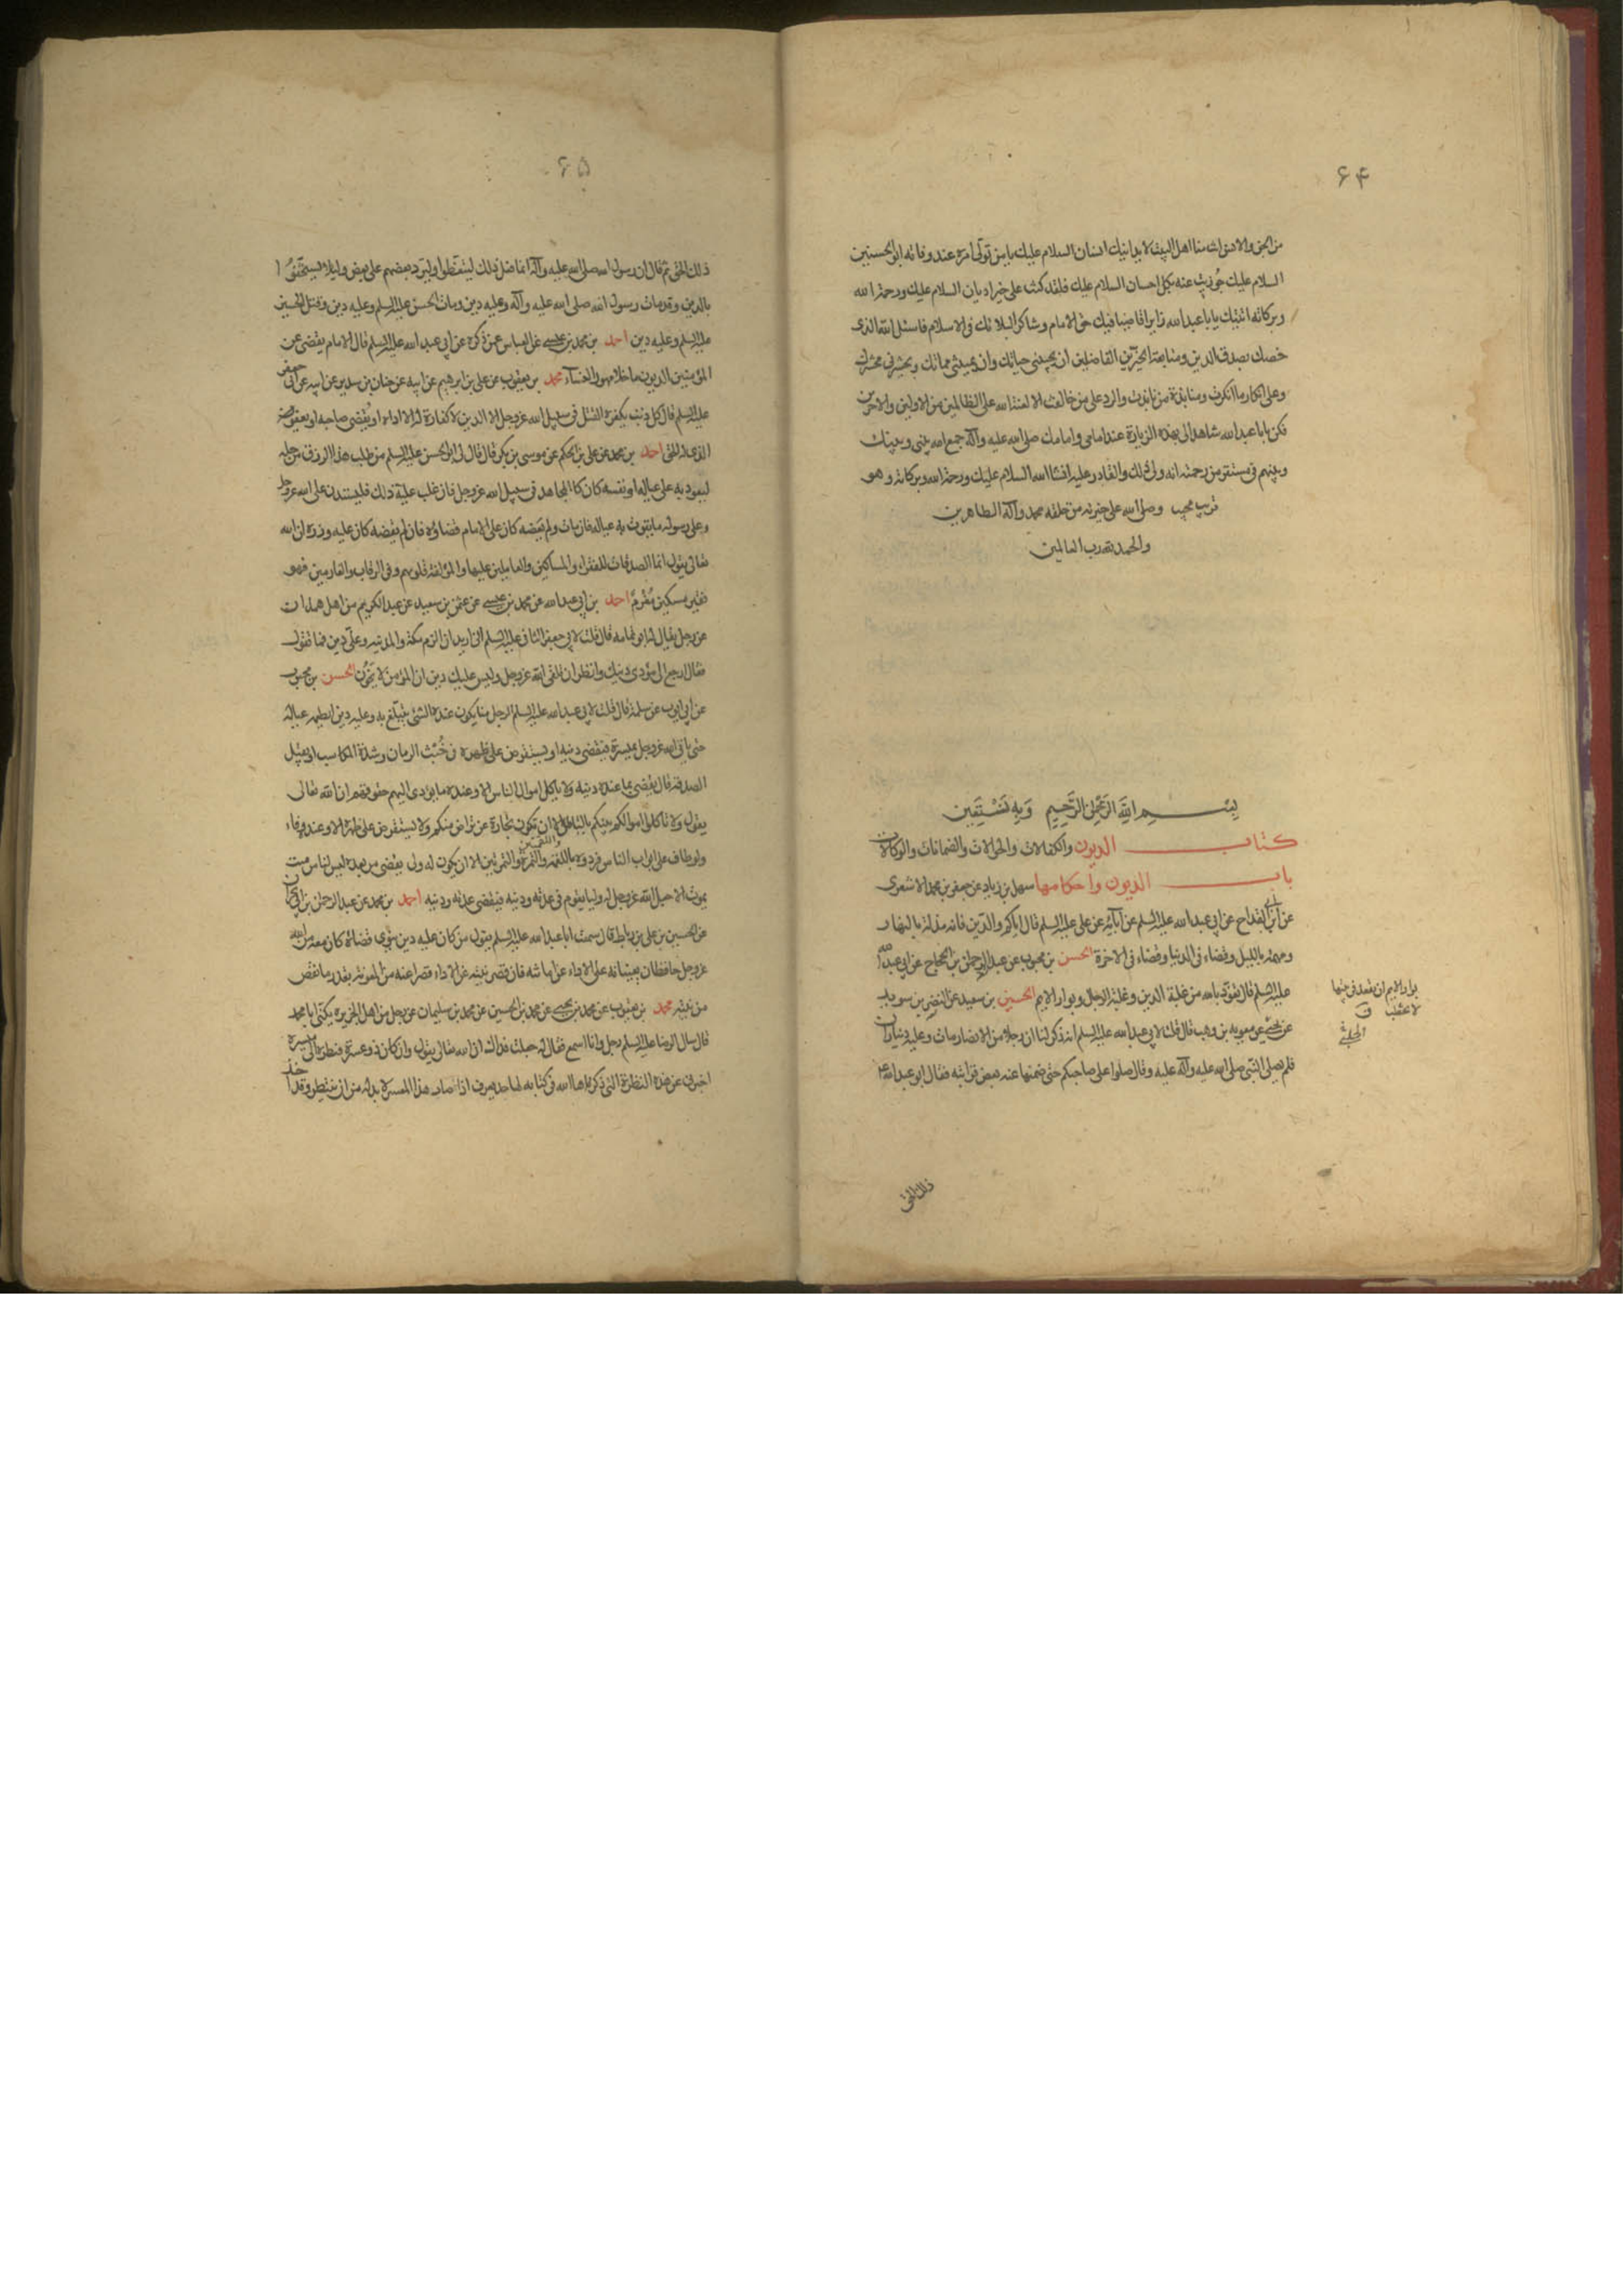 ۶۴
من الجن والانس انت منا اهل البيت لا يدانيك انسان السلام عليك يا من تولى امره عند وفاته ابو الحسنين
السلام عليك جوزيت عنه بكل احسان السلام عليك فلقد كنت على خير اديان السلام عليك ورحمة الله
وبركاته اتيتك يا با عبد الله زايرا قاضيا فيك حق الامام وشاكرا لبلائك في الاسلام فاسئل الله الذي
خصك بصدق الدين ومتابعة الخيرين الفاضلين ان يحييني حياتك وان يميتني مماتك ويحشرني محشرك
وعلى انكار ما انكرت ومنابذة من نابذت والرد على من خالفت الا لعنة الله على الظالمين من الاولين والاخرين
فكن يا با عبد الله شاهدا لي بهذه الزيارة عند امامي وامامك صلى الله عليه وآله جمع الله بيني وبينك
وبينهم في مستقر من رحمته انه ولي ذلك والقادر عليه انشا الله السلام عليك ورحمة الله وبركاته وهو
قريب مجيب وصلى الله على خيرته من خلقه محمد وآله الطاهرين
والحمد لله رب العالمين
بِسْمِ اللهِ الرَّحْمٰنِ الرَّحِيمِ وَبِهِ نَسْتَعِين
كتاب الديون والكفالات والحوالات والضمانات والوكالات
باب الديون واحكامها سهل بن زياد عن جعفر بن محمد الاشعري
عن ابن القداح عن ابي عبد الله عليه السلم عن آبائه عن علي عليه السلم قال اياكم والدين فانه مذلة بالنهار
ومهمة بالليل وقضاء في الدنيا وقضاء في الاخرة الحسن بن محبوب عن عبد الرحمن بن الحجاج عن ابي عبد الله
عليه السلم قال نعوذ بالله من غلبة الدين وغلبة الرجال وبوار الايم الحسين بن سعيد عن النضر بن سويد
عن يحيى عن معوية بن وهب قال قلت لابي عبد الله عليه السلم انه ذكر لنا ان رجلا من الانصار مات وعليه ديناران
فلم يصل النبي صلى الله عليه وآله عليه وقال صلوا على صاحبكم حتى ضمنها عنه بعض قرابته فقال ابو عبد الله ع
بوار الايم ان تقعد في بيتها
لا تخطب
ذلك الحق
۶۵
ذلك الحق ثم قال ان رسول الله صلى الله عليه وآله انما فعل ذلك ليتعظوا وليرد بعضهم على بعض ولئلا يستخفوا
بالدين وقد مات رسول الله صلى الله عليه وآله وعليه دين ومات الحسن عليه السلم وعليه دين وقتل الحسين
عليه السلم وعليه دين احمد بن محمد بن عيسى عن العباس عمن ذكره عن ابي عبد الله عليه السلم قال الامام يقضي عن
المؤمنين الديون ما خلا مهور النساء محمد بن يعقوب عن علي بن ابرهيم عن ابيه عن حنان بن سدير عن ابيه عن ابي جعفر
عليه السلم قال كل ذنب يكفره القتل في سبيل الله عز وجل الا الدين لا كفارة له الا اداءه او يقضي صاحبه او يعفو
الذي له الحق احمد بن محمد عن علي بن الحكم عن موسى بن بكر قال قال لي ابو الحسن عليه السلم من طلب هذا الرزق من حله
ليعود به على عياله او نفسه كان كالمجاهد في سبيل الله عز وجل فان غلب عليه ذلك فليستدن على الله عز وجل
وعلى رسوله ما يقوت به عياله فان مات ولم يقضه كان على الامام قضاؤه فان لم يقضه كان عليه وزره ان الله
تعالى يقول انما الصدقات للفقراء والمساكين والعاملين عليها والمؤلفة قلوبهم وفي الرقاب والغارمين فهو
فقير مسكين مُغرَمٌ احمد بن ابي عبد الله عن محمد بن عيسى عن عثمن بن سعيد عن عبد الكريم من اهل همدان
عن رجل يقال له ابو ثمامه قال قلت لابي جعفر الثاني عليه السلم اني اريد ان الزم مكة والمدينة وعلي دين فما تقول
فقال ارجع الى مؤدى دينك وانظر ان تلقى الله عز وجل وليس عليك دين ان المؤمن لا يخون الحسن بن محبوب
عن ابي ايوب عن سلمة قال قلت لابي عبد الله عليه السلم الرجل منا يكون عنده الشئ يتبلغ به وعليه دين ايطعمه عياله
حتى ياتي الله عز وجل بميسرة فيقضي دينه او يستقرض على ظهره في خُبث الزمان وشدة المكاسب او يقبل
الصدقة قال يقضي بما عنده دينه ولا ياكل اموال الناس الا وعنده ما يؤدي اليهم حقوقهم ان الله تعالى
يقول ولا تاكلوا اموالكم بينكم بالباطل الا ان تكون تجارة عن تراض منكم ولا يستقرض على ظهره الا وعنده وفاء
ولو طاف على ابواب الناس فردوه باللقمة واللقمتين والتمرة والتمرتين الا ان يكون له ولي يقضي من بعده ليس لنا من ميت
يموت الا جعل الله عز وجل له وليا يقوم في عدته ودينه فيقضي عدته ودينه احمد بن محمد عن عبد الرحمن بن ابي نجران
عن الحسين بن علي بن رباط قال سمعت ابا عبد الله عليه السلم يقول من كان عليه دين ينوي قضاءه كان معه من الله
عز وجل حافظان يعينانه على الاداء عن امانته فان قصرت نيته عن الاداء قصرا عنه من المعونة بقدر ما نقص
من نيته محمد بن يعقوب عن محمد بن يحيى عن محمد بن الحسين عن محمد بن سليمان عن رجل من اهل الجزيرة يكنى ابا محمد
قال سال الرضا عليه السلم رجل وانا اسمع فقال له جعلت فداك ان الله تعالى يقول وان كان ذو عسرة فنظرة الى ميسرة
اخبرني عن هذه النظرة التي ذكرها الله في كتابه لها حد يعرف اذا صار هذا المعسر لا بد له من ان ينتظر وقد اخذ